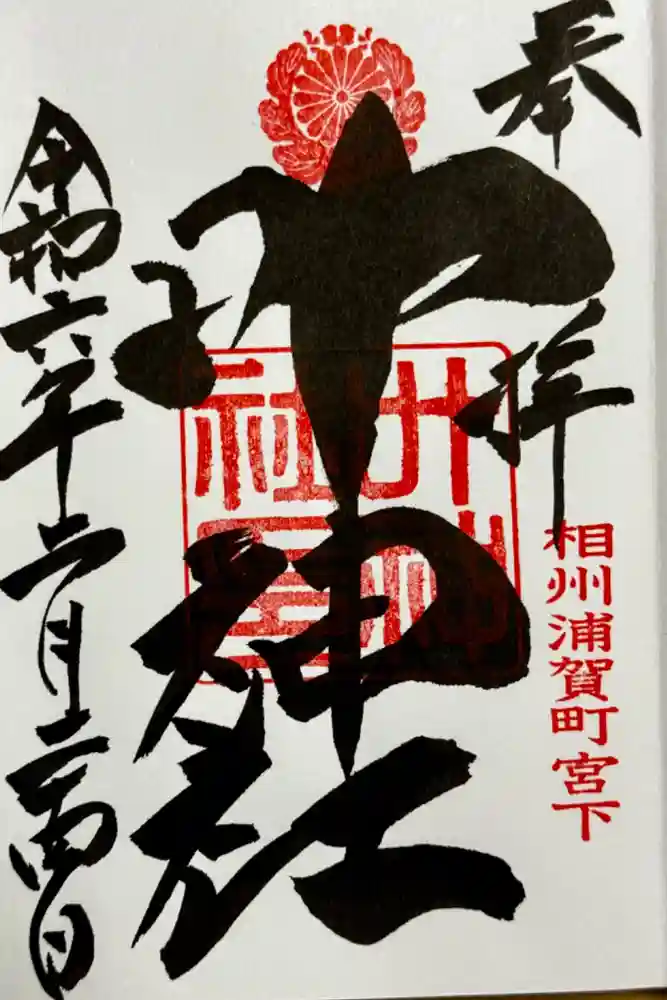 奉拝
相州浦賀町宮下
叶神社
叶神
社
令和六年十二月二十四日